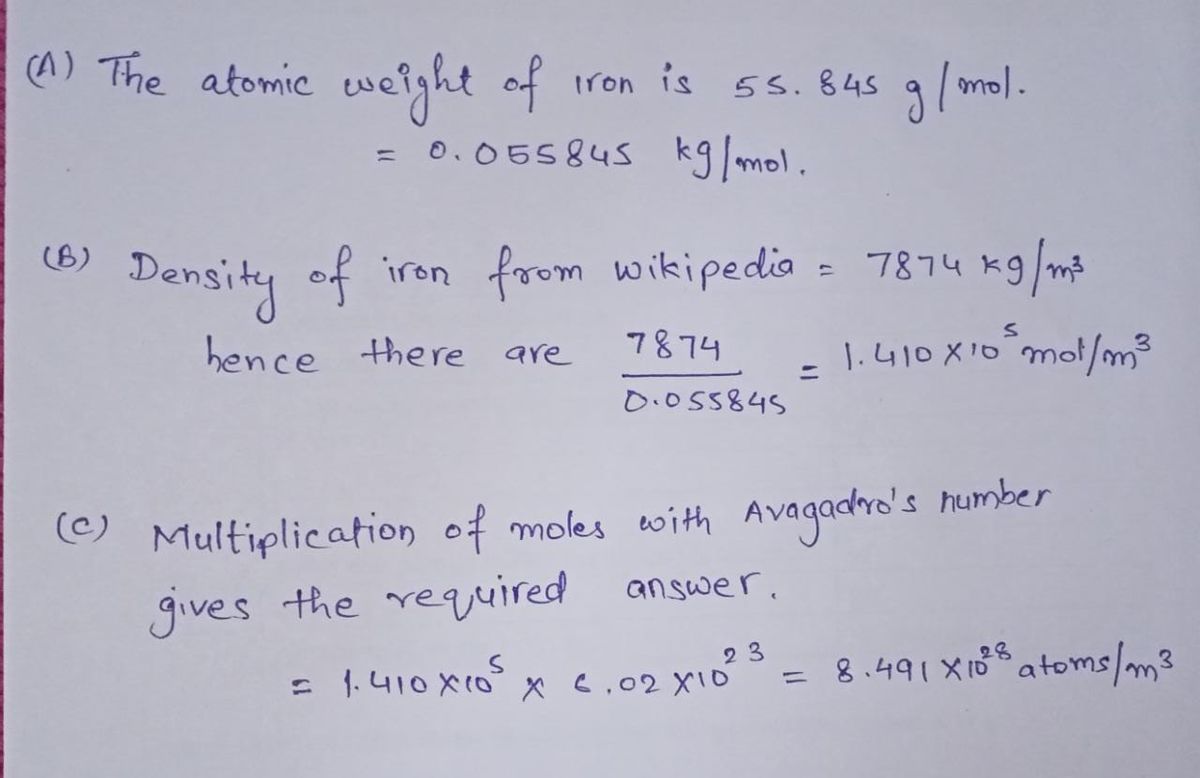 (A) The atomic weight of iron is 55.845 g/mol.
= 0.055845 kg/mol.
(B) Density of iron from wikipedia = 7874 kg/m³
hence there are 7874 / 0.055845 = 1.410 X 10⁵ mol/m³
(C) Multiplication of moles with Avagadro's number
gives the required answer.
= 1.410 X 10⁵ X 6.02 X 10²³ = 8.491 X 10²⁸ atoms/m³